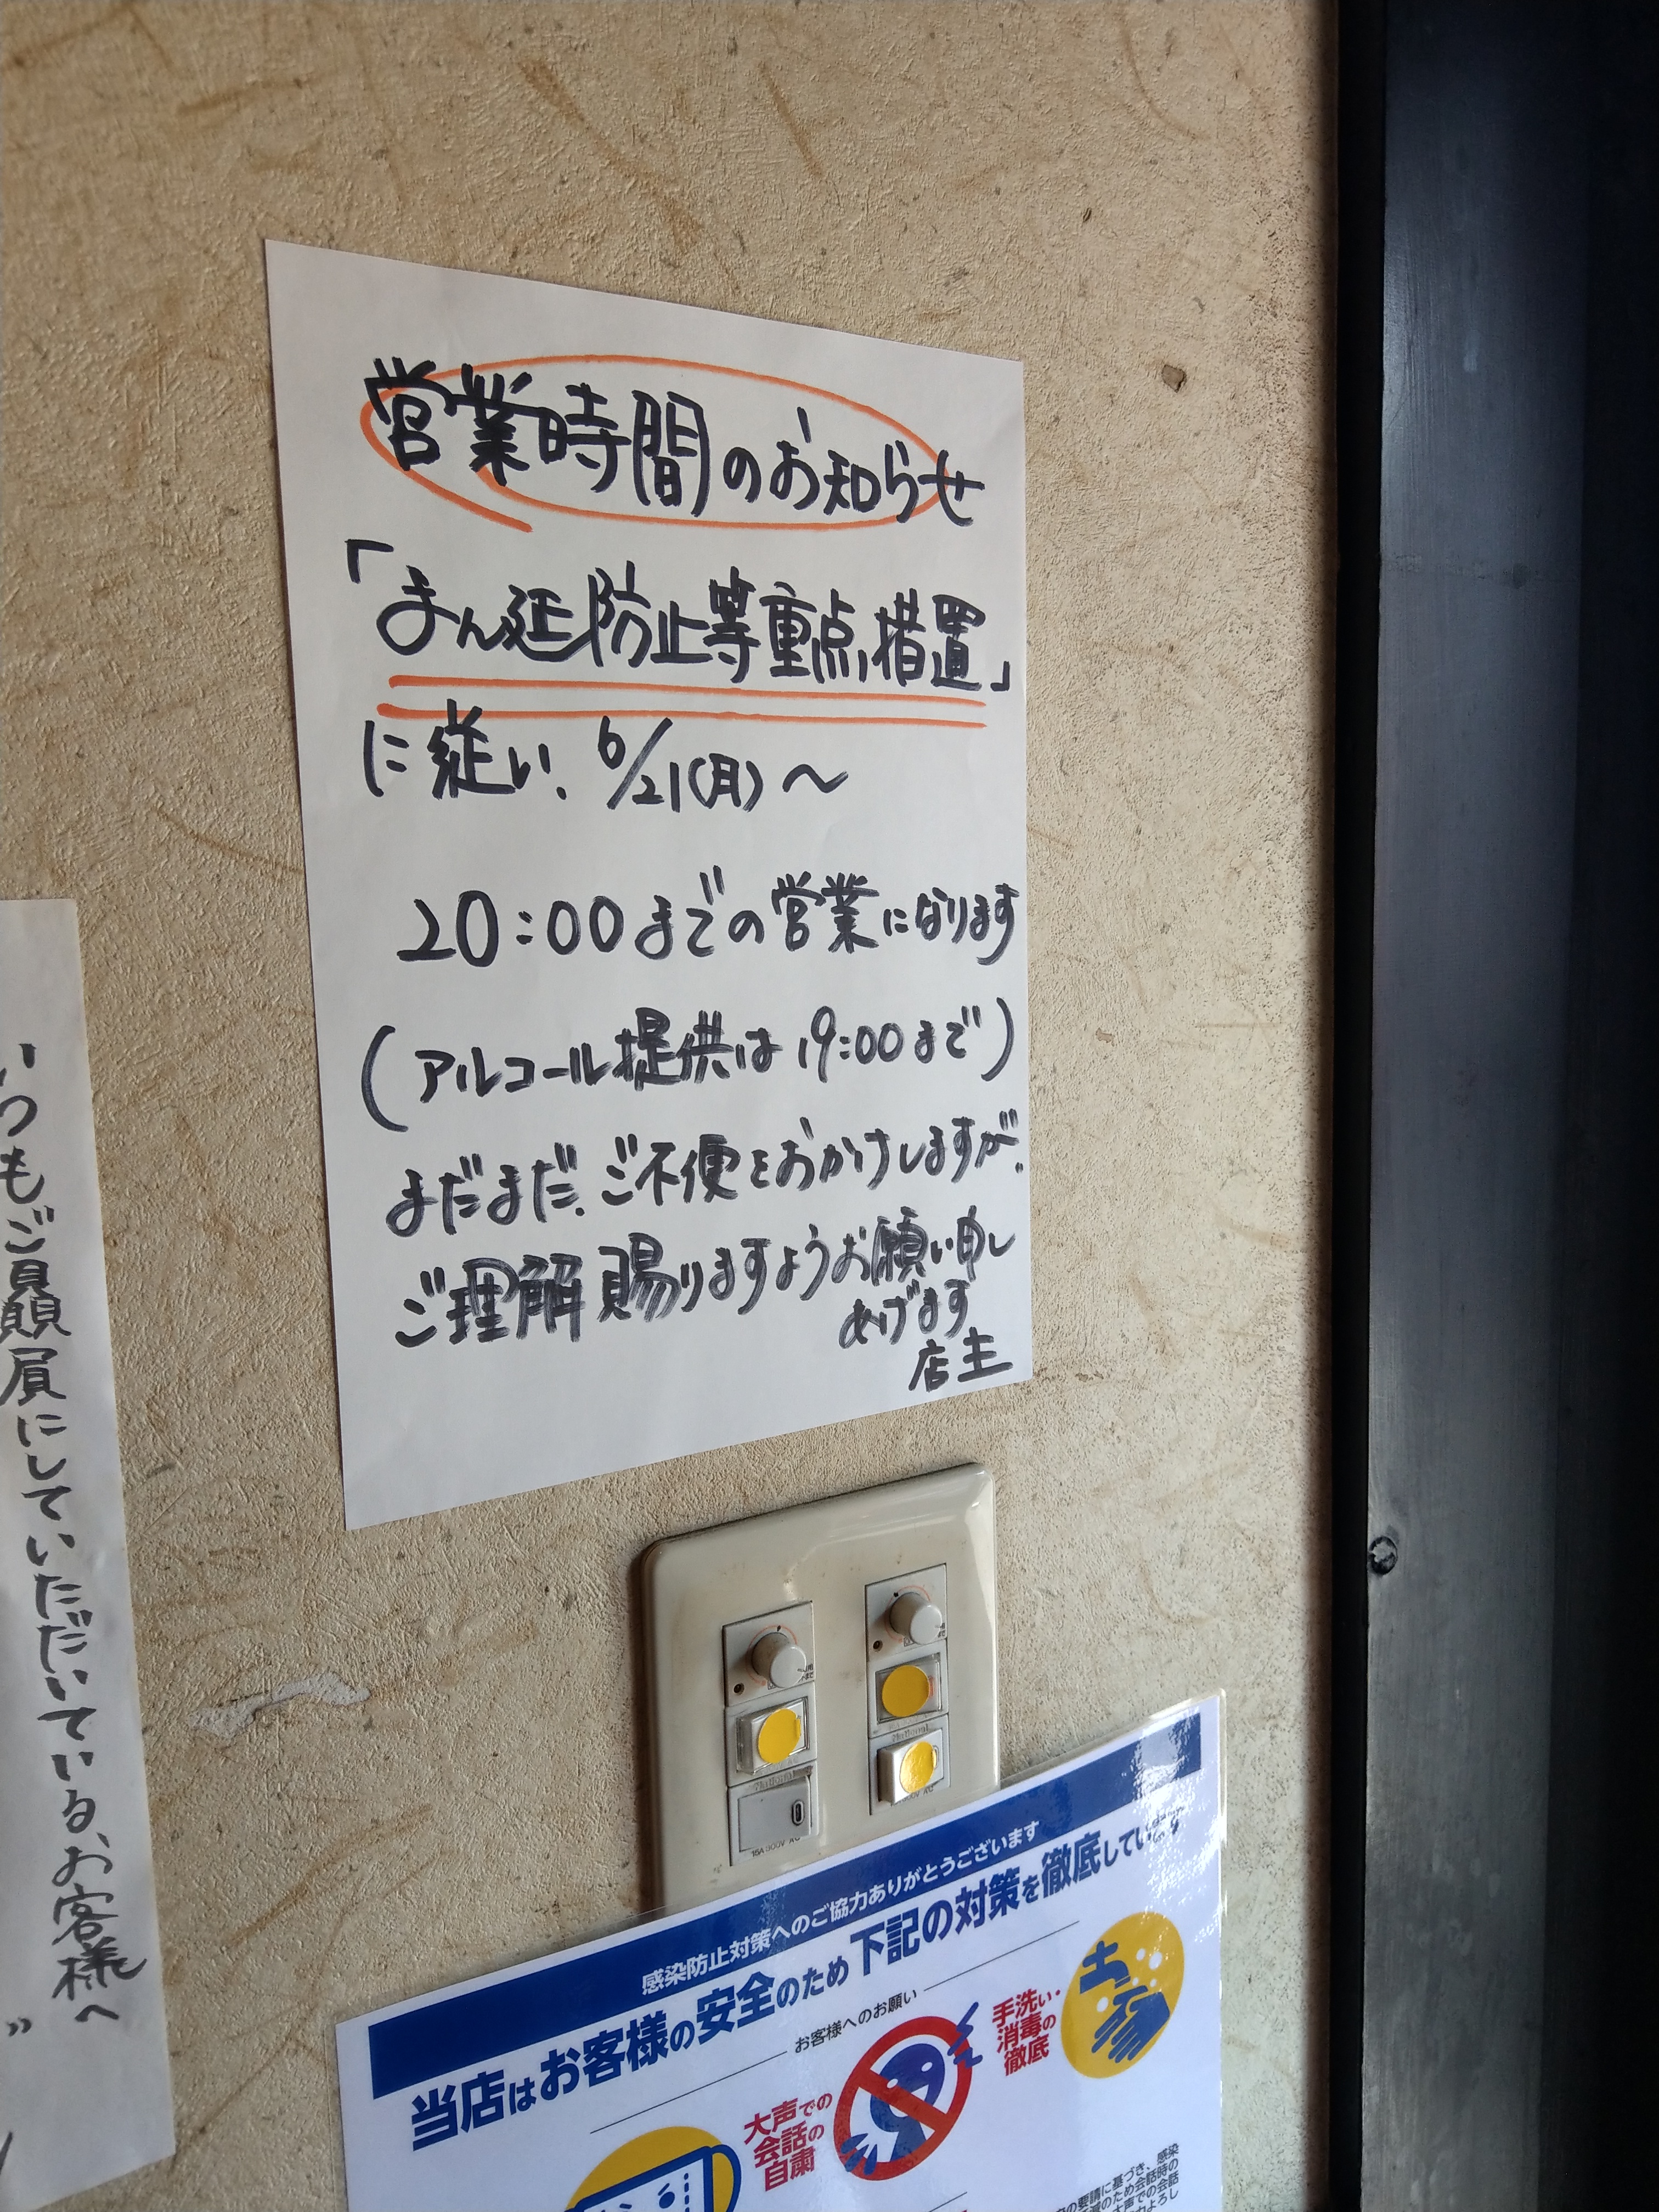 営業時間のお知らせ
「まん延防止等重点措置」
に従い、6/21(月)〜
20:00までの営業になります
(アルコール提供は19:00まで)
まだまだ、ご不便をおかけしますが、
ご理解賜りますようお願い申し
あげます
店主
いつもご贔屓にしていただいている、お客様へ
感染防止対策へのご協力ありがとうございます
当店はお客様の安全のため下記の対策を徹底しています
お客様へのお願い
手洗い・
消毒の
徹底
大声での
会話の
自粛